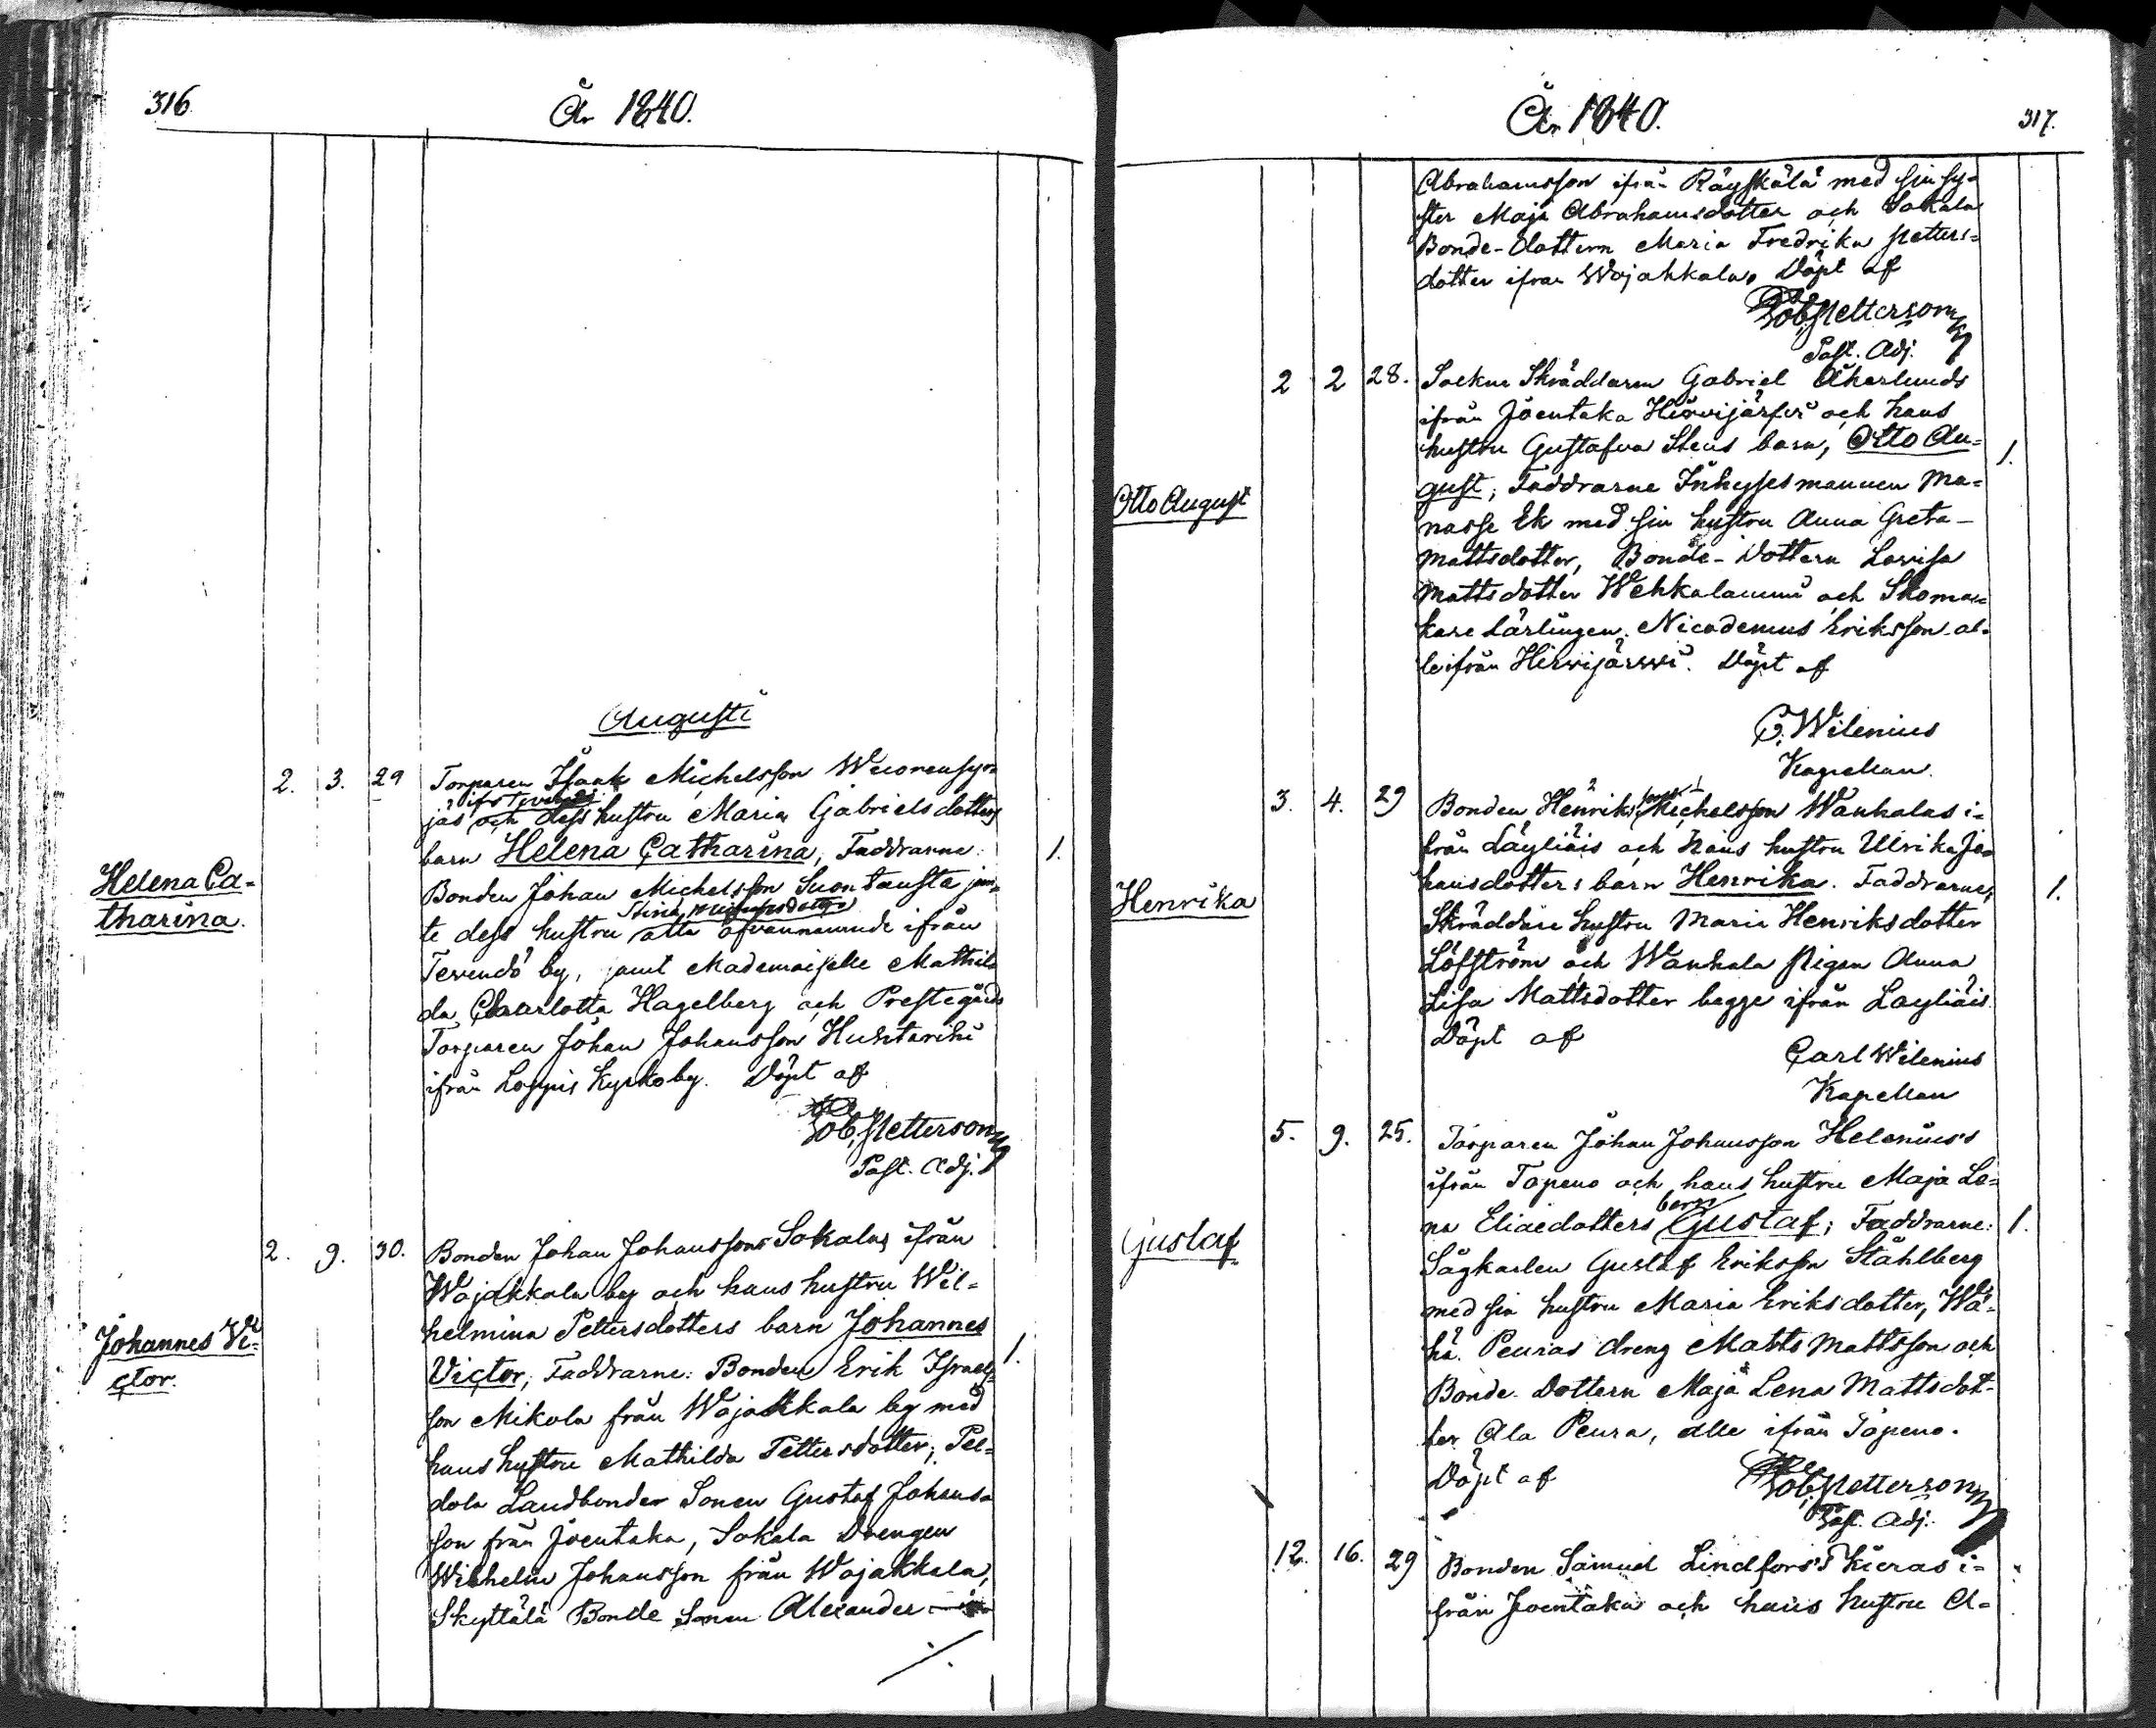 316.
År 1840.
Augusti
2. 3. 29 Torparen Isaak Michelsson Wuorensyr=
jäs ifr Tevendö och dess hustru Maria Gabrielsdotters
barn Helena Catharina, Faddrarne:
1.
Helena Ca=
tharina.
Bonden Johan Michelsson Suontausta jem=
te dess hustru Stina Michelsdotter alla ofvannämnde ifrån
Tevendö by, samt Mademoiselle Mathil=
da Charlotta Hagelberg och Prestegårds
Torparen Johan Johansson Huhtarihi
ifrån Loppis Kyrkoby. Döpt af
Job. Pettersson
Past. Adj.
2. 9. 30. Bonden Johan Johanssons Sokalas ifrån
Wojakkala by och hans hustru Wil=
helmina Pettersdotters barn Johannes
Johannes Vi=
ctor.
Victor, Faddrarne: Bonden Erik Israels=
1.
son Mikola från Wojakkala by med
hans hustru Mathilda Pettersdotter, Pel=
dola Landbonde Sonen Gustaf Johans=
son från Joentaka, Sokala Drengen
Wilhelm Johansson från Wojakkala,
Skyttälä Bonde Sonen Alexander
./.
År 1840.
317.
Abrahamsson ifrån Räyskälä med sin sy=
ster Maja Abrahamsdotter och Sokala
Bonde-dottern Maria Fredrika Petters=
dotter ifrån Wojakkala, Döpt af
Job. Pettersson
Past. Adj.
2 2 28. Sockne Skräddaren Gabriel Åkerlunds
ifrån Joentaka Hirvijärfvi och hans
hustru Gustafva Stens barn, Otto Au=
1.
Otto August
gust; Faddrarne Inhysesmannen Ma=
nasse Ek med sin hustru Anna Greta
Mattsdotter, Bonde-Dottern Lovisa
Mattsdotter Wehkalammi och Skoma=
kare Lärlingen Nicodemus Eriksson al=
le ifrån Hirvijärvi. Döpt af
C. Wilenius
Kapellan.
3. 4. 29 Bonden Henrik Michelsson Wanhalas i=
från Läyliäis och hans hustru Ulrika Jo=
hansdotters barn Henrika. Faddrarne,
1.
Henrika
Skräddare hustru Maria Henriksdotter
Löfström och Wanhala Pigan Anna
Lisa Mattsdotter begge ifrån Layliäis.
Döpt af
Carl Wilenius
Kapellan
5. 9. 25. Torparen Johan Johansson Helenius's
ifrån Topeno och hans hustru Maja Le=
na Eliaedotters barn Gustaf; Faddrarne:
1.
Gustaf
Sågkarlen Gustaf Eriksson Ståhlberg
med sin hustru Maria Eriksdotter, Wä=
hä Peuras dreng Matts Mattsson och
Bonde Dottern Maja Lena Mattsdot=
ter Ala Peura, alle ifrån Topeno.
Döpt af
Job. Pettersson
Past. Adj.
12. 16. 29 Bonden Samuel Lindfors's Kieras i=
från Joentaka och hans hustru A=